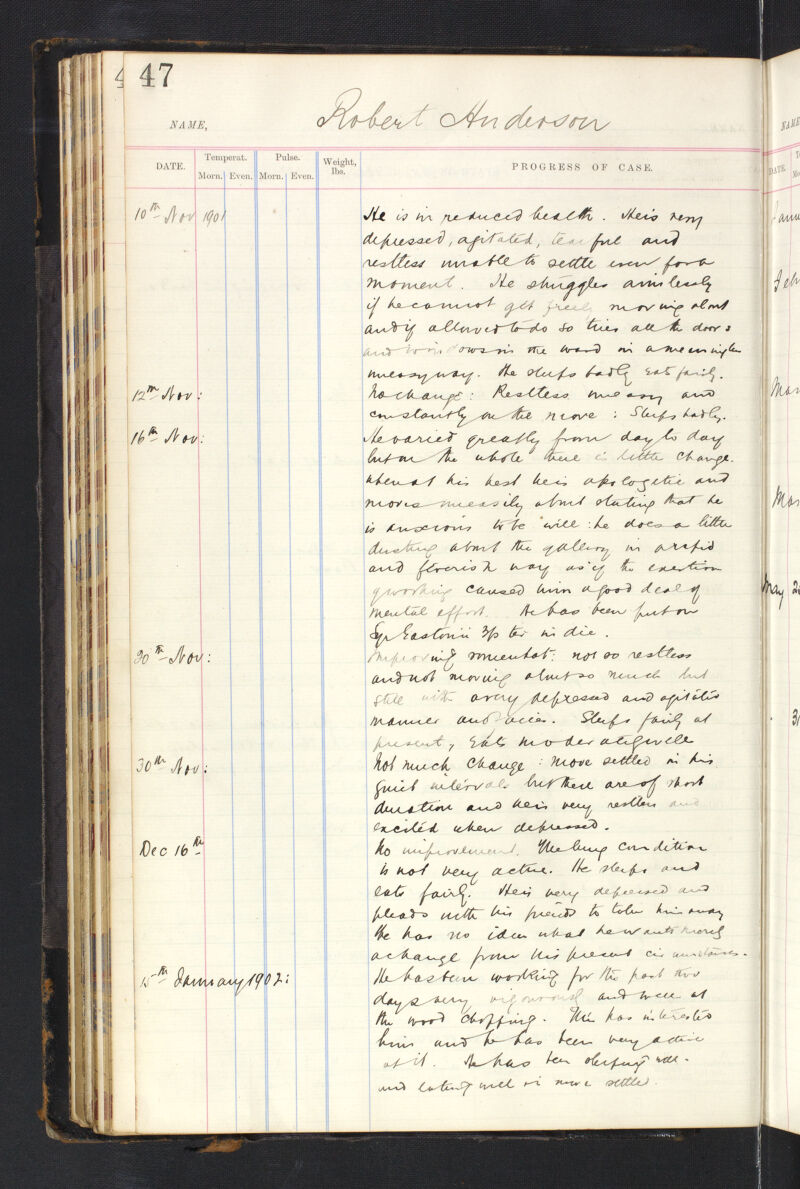 4 47
NAME, Robert Anderson
DATE. Temperat. Pulse. Weight, lbs. PROGRESS OF CASE.
Morn. Even. Morn. Even.
10th Nov 1901 He is in reduced health. He is very
depressed, agitated, tearful and
restless unable to settle even for a
moment. He struggles aimlessly
if he cannot get freely moving about
and if allowed to do so tries all the doors
and windows in the ward in a meaningless
uneasy way. He sleeps badly eats fairly.
12th Nov: No change: Restless uneasy and
constantly on the move: Sleeps badly.
16th Nov: He varied greatly from day to day
but on the whole there is little change.
When at his best he is apologetic and
moves uneasily about stating that he
is anxious to be well: he does a little
dusting about the gallery in a rapid
and feverish way as if the exertion
of working caused him a good deal of
mental effort. He has been put on
Syr Eastonii ʒfs ter in die.
20th Nov: Improving somewhat: not so restless
and not moving about so much but
still with a very depressed and agitated
manner and voice. Sleeps fairly at
present, Eats moderately well
30th Nov: Not much change: more settled in his
quiet intervals but these are of short
duration and he is very restless and
excited when depressed.
Dec 16th No improvement. The lung condition
is not very active. He sleeps and
eats fairly. He is very depressed and
pleads with his friends to take him away
He has no idea what he wants merely
a change from his present circumstances.
15th January 1902: He has been working for the past two
days very vigorously and well at
the wood chopping. This has interested
him and he has been very active
at it. He has been sleeping well.
and eating well is more settled.
NAME
DATE
May